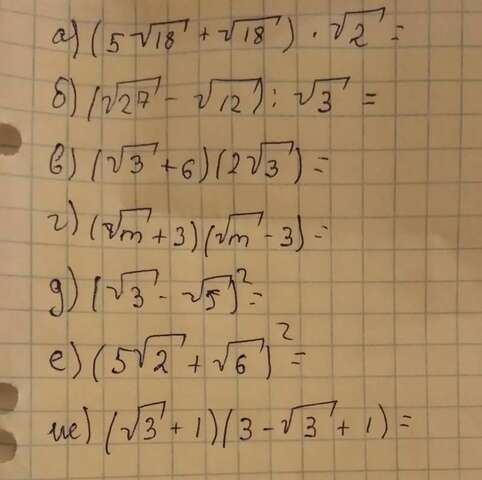 а) (5√18 + √18) · √2 =
б) (√27 - √12) : √3 =
в) (√3 + 6)(2√3) =
г) (√m + 3)(√m - 3) =
д) (√3 - √5)² =
е) (5√2 + √6)² =
ж) (√3 + 1)(3 - √3 + 1) =